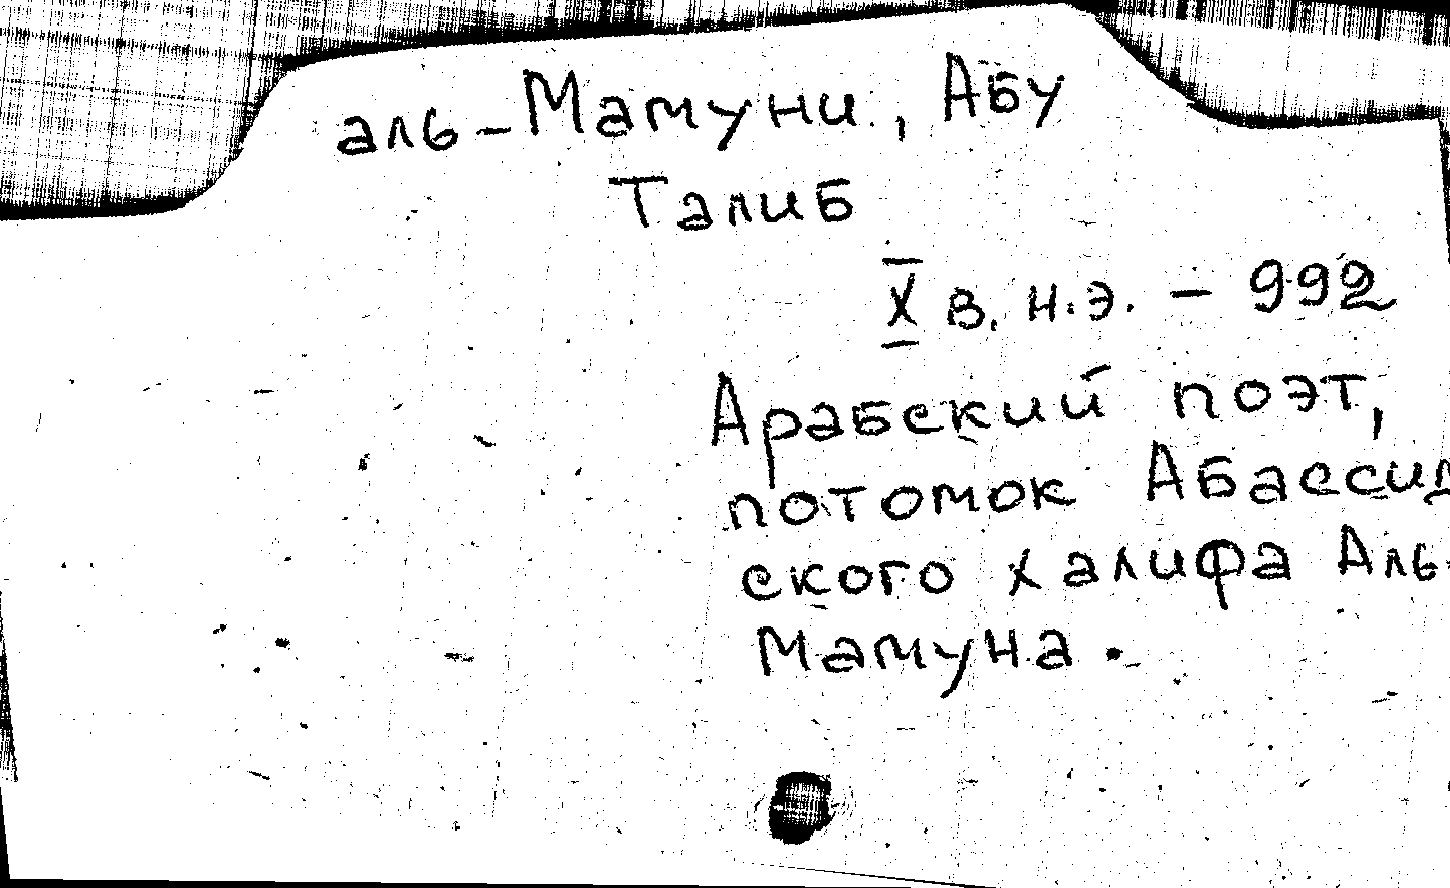 аль-Мамуни, Абу
Талиб
X в. н.э. - 992
Арабский поэт,
потомок Абассид
ского халифа Аль-
Мамуна.